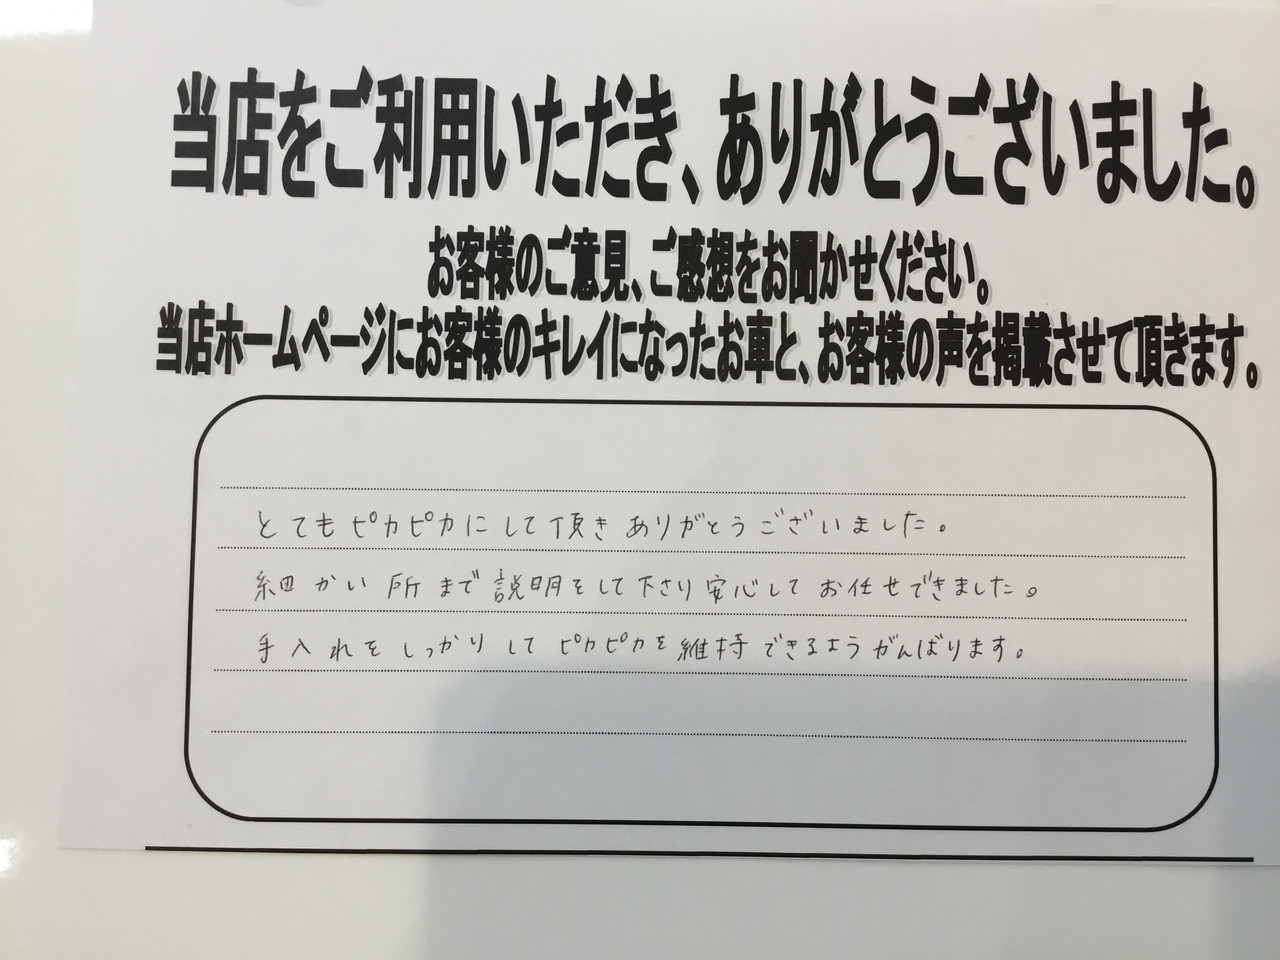 当店をご利用いただき、ありがとうございました。
お客様のご意見、ご感想をお聞かせください。
当店ホームページにお客様のキレイになったお車と、お客様の声を掲載させて頂きます。
とてもピカピカにして頂きありがとうございました。
細かい所まで説明をして下さり安心してお任せできました。
手入れをしっかりしてピカピカを維持できるようがんばります。